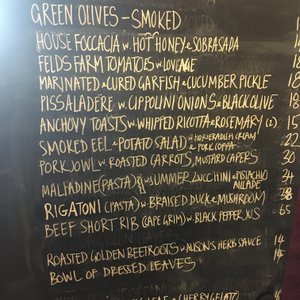 GREEN OLIVES - SMOKED
HOUSE FOCCACIA w HOT HONEY & SOBRASADA 18
FELDS FARM TOMATOES w LOVEAGE 18
MARINATED & CURED GARFISH & CUCUMBER PICKLE 18
PISSALADERE w CIPPOLINI ONIONS & BLACK OLIVE 18
ANCHOVY TOASTS w WHIPPED RICOTTA & ROSEMARY (2) 15
SMOKED EEL & POTATO SALAD w HORSERADISH CREAM & PORK COPPA 22
PORK JOWL w ROASTED CARROTS, MUSTARD CAPERS 30
MALFADINE (PASTA) w SUMMER ZUCCHINI & PISTACHIO AILLADE 34
RIGATONI (PASTA) w BRAISED DUCK & MUSHROOM 38
BEEF SHORT RIB (CAPE GRIM) w BLACK PEPPER JUS 65
ROASTED GOLDEN BEETROOTS w ALISON'S HERB SAUCE 14
BOWL OF DRESSED LEAVES 14